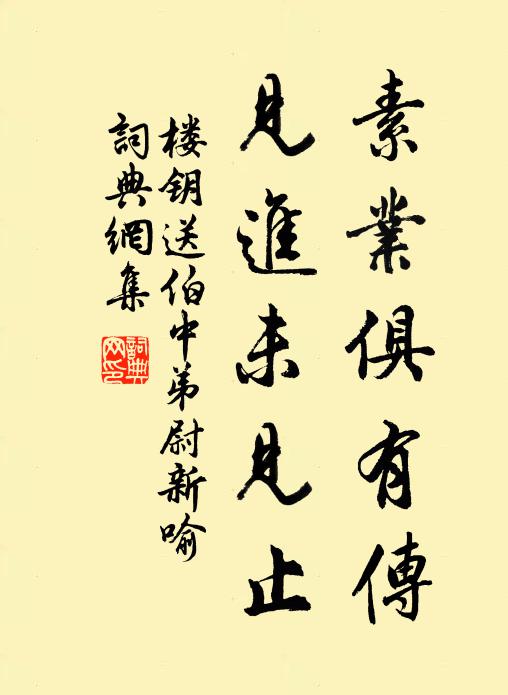 素業俱有傳
見進未見止
楼钥送伯中弟尉新喻
詞典網集
詞典網印